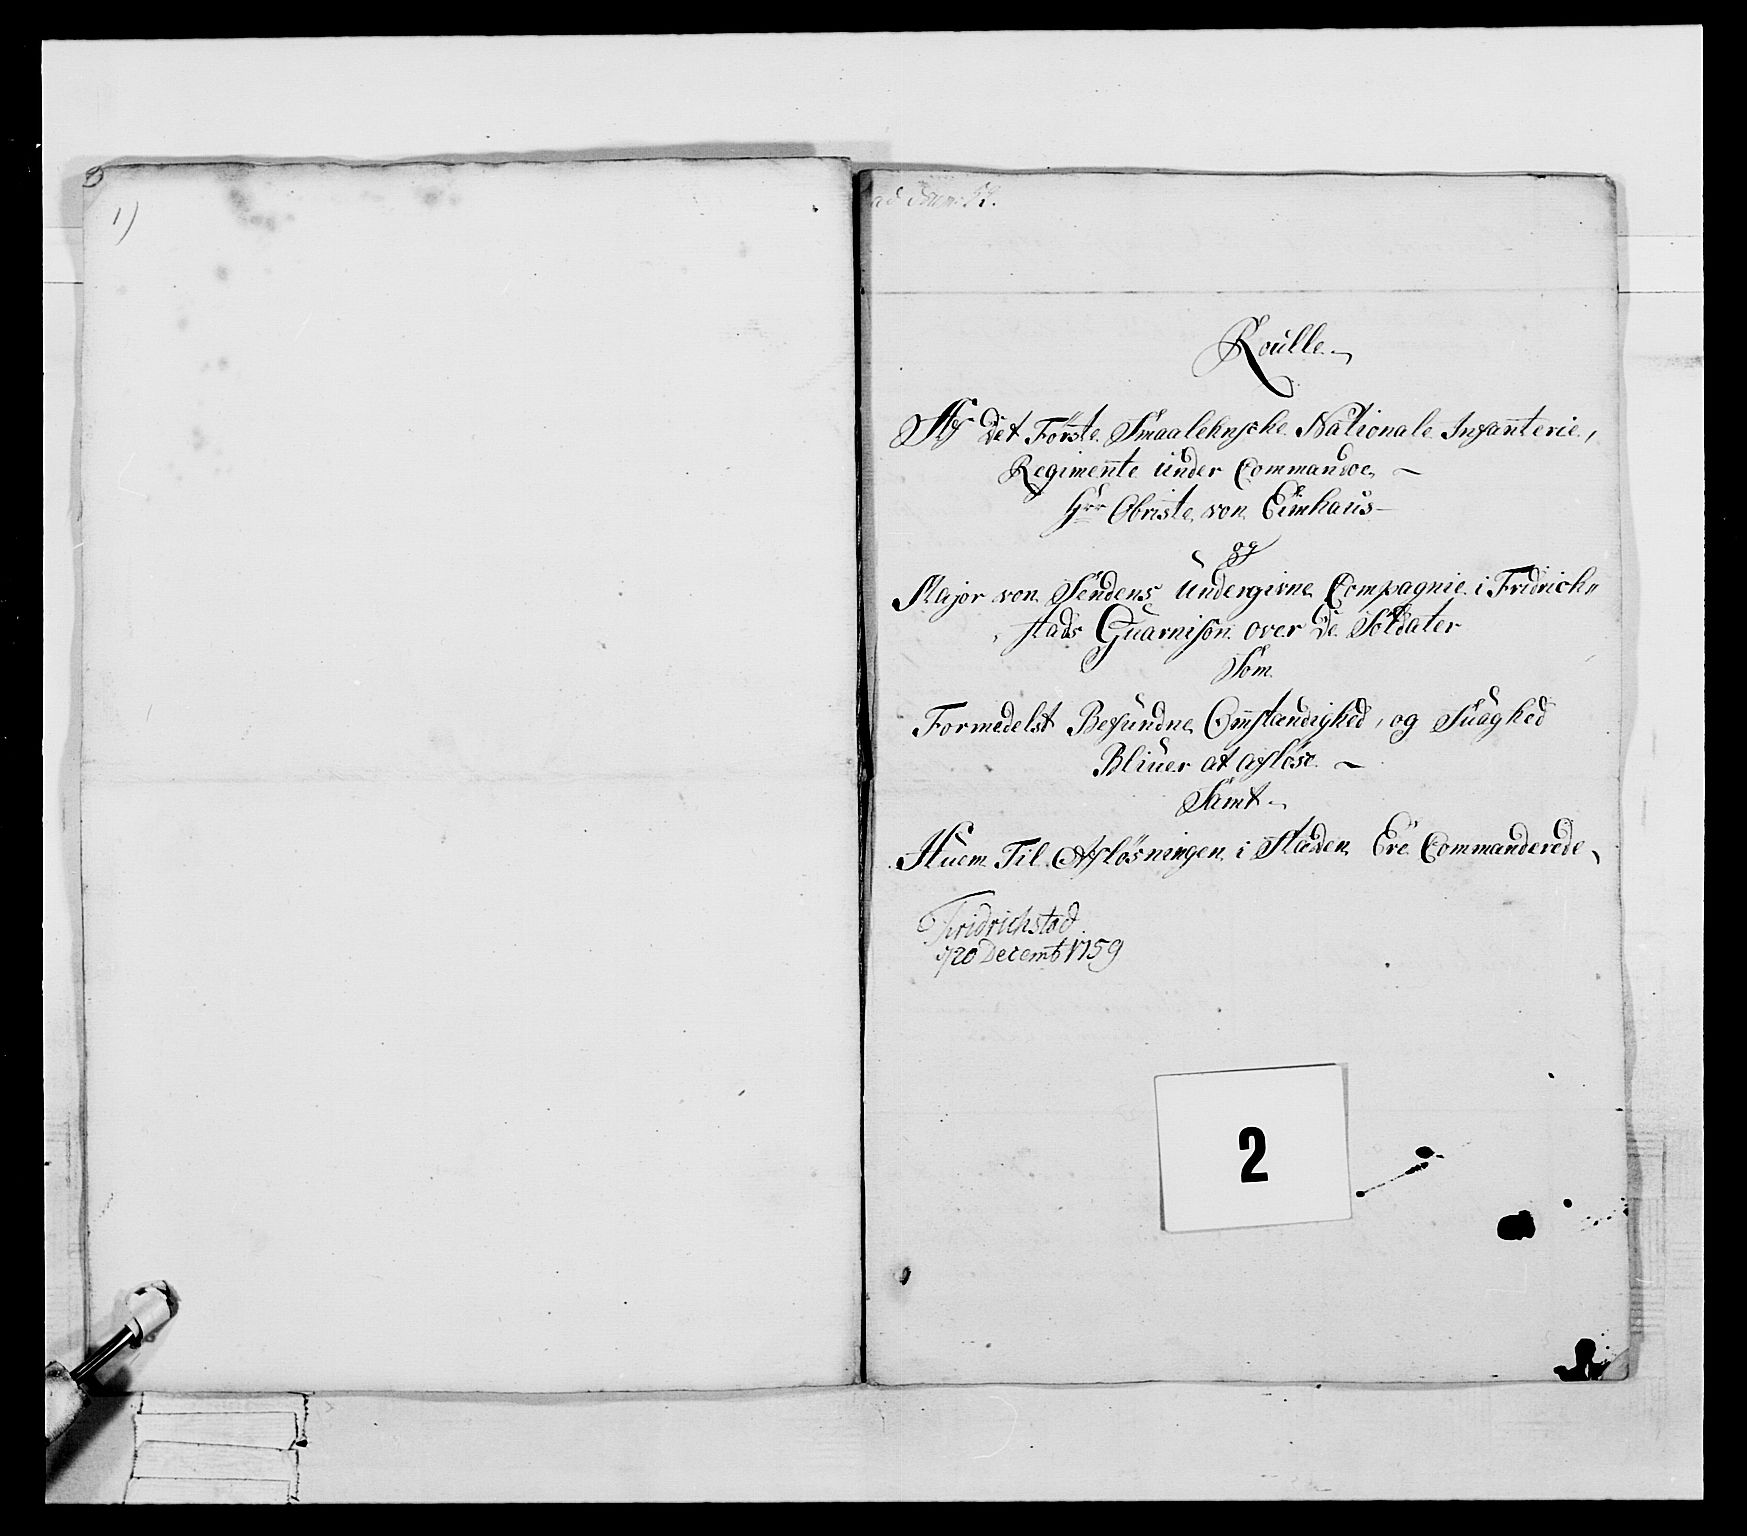 1)
ad Num: 59.
Roulle.
Af det Förste Smaalehnsche Nationale Infanterie,
Regimente under Commandoe
Hrr Obriste von Eimhaus
og
Major von Sendens Undergivne Compagnie i Fridrich„
stads Guarnison over De Soldater
Som
Formedelst Befundne Omstændighed, og Suaghed
Bliuer at aflöse
Samt
Huem Til Aflösningen i Staden Ere Commanderede,
Fridrichstad
d/20 Decemb 1759
2